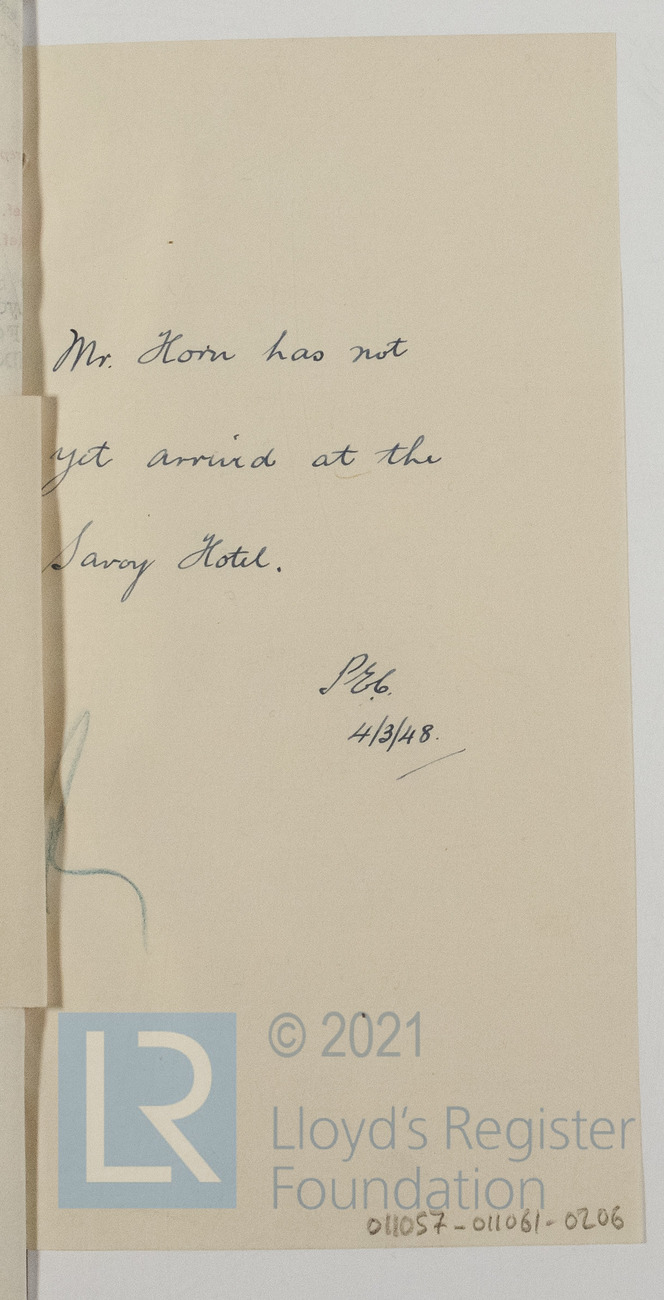 Mr. Horn has not
yet arrived at the
Savoy Hotel.
4/3/48.
LR
© 2021
Lloyd's Register
Foundation
011057-011061-0206